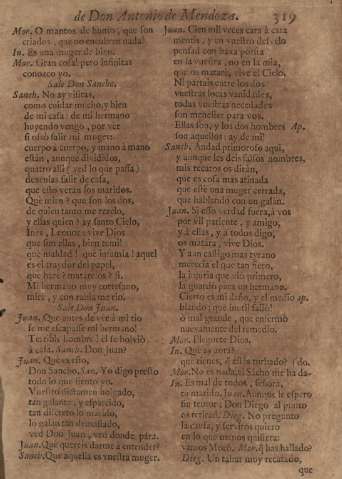 de Don Antonio de Mendoza. 319
Mar. O mantos de humo, que son
criados, que no encubren nada!
In. Es una muger de bien.
Mar. Gran cosa! pero infinitas
conozco yo.
Sale Don Sancho.
Sanch. No ay visitas,
como cuidar mucho, y bien
de mi casa: de mi hermano
huyendo vengo, por ver
si osso salir mi muger:
cuerpo à cuerpo, y mano à mano
están, aunque divididos,
quatro assi? ved lo que passa?
descuidas salir de casa,
que esto verán los maridos.
Què miran? que son los dos,
de quien tanto me rezelo,
y ellas quien? ay santo Cielo,
Inès, Leonor! vive Dios
que son ellas, bien temì!
què maldad! què infamia! aquel
es el traydor del papel,
què harè? matarèlos? sì.
Mi hermano muy cortesano,
mire, y con rabia me rio.
Sale Don Juan.
Juan. Que antes de verà mi tio
se me escapasse mi hermano!
Terrible hombre! èl se bolviò
à casa. Sanch. Don Juan?
Juan. Què es esso,
Don Sancho. San. Yo digo presto
todo lo que siento yo.
Vuestro dictamen holgado,
tan galante, y esparcido,
tan discreto lo marido,
lo galan tan descuidado,
ved Don Juan, ved donde pára.
Juan. Què quereis darme à entender?
Sanch. Que aquella es vuestra muger.
Juan. Cien mil veces cara à cara
mentis, y en vuestro des
pensad con baxa porfia
en la vuestra, no en la mia,
que os matarè, vive el Cielo.
Ni partais entre los dos
vuestras locas vanidades,
todas vuestras necedades
son menester para vos.
Ellas son, y los dos hombres Ap.
son aquellos: ay de mi!
Sanch. Andad primoroso aqui,
y aunque les deis falsos nombres,
mis recatos os diràn,
que es cosa mas afinada
que estè una muger cerrada,
que hablando con un galan.
Juan. Si esso verdad fuera, à vos
por vil pariente, y amigo,
y à ellas, y à todos digo,
os matàra, vive Dios.
Y a un castigo mas tyrano
merecia el que tan fiero,
la injuria que viò primero,
la guardò para un hermano.
Cierto es mi daño, y el medio ap.
blando; que infiel fallò!
ò mal grande, que enfermò
nuevamente del remedio.
Mar. Llegote Dios.
In. Què es aora?
que tienes, è si es turbado? (do.
Mar. No es nada, el Sacho me ha da-
In. Es mal de todos, señora,
tu marido. Juan. Aunque le espero
fin temor: Don Diego al punto
os retirad. Dieg. No pregunto
la causa, y serviros quiero
en lo que menos quisiera:
vamos Moco. Mor. què has hallado?
Dieg. Un talur muy recatado,
que